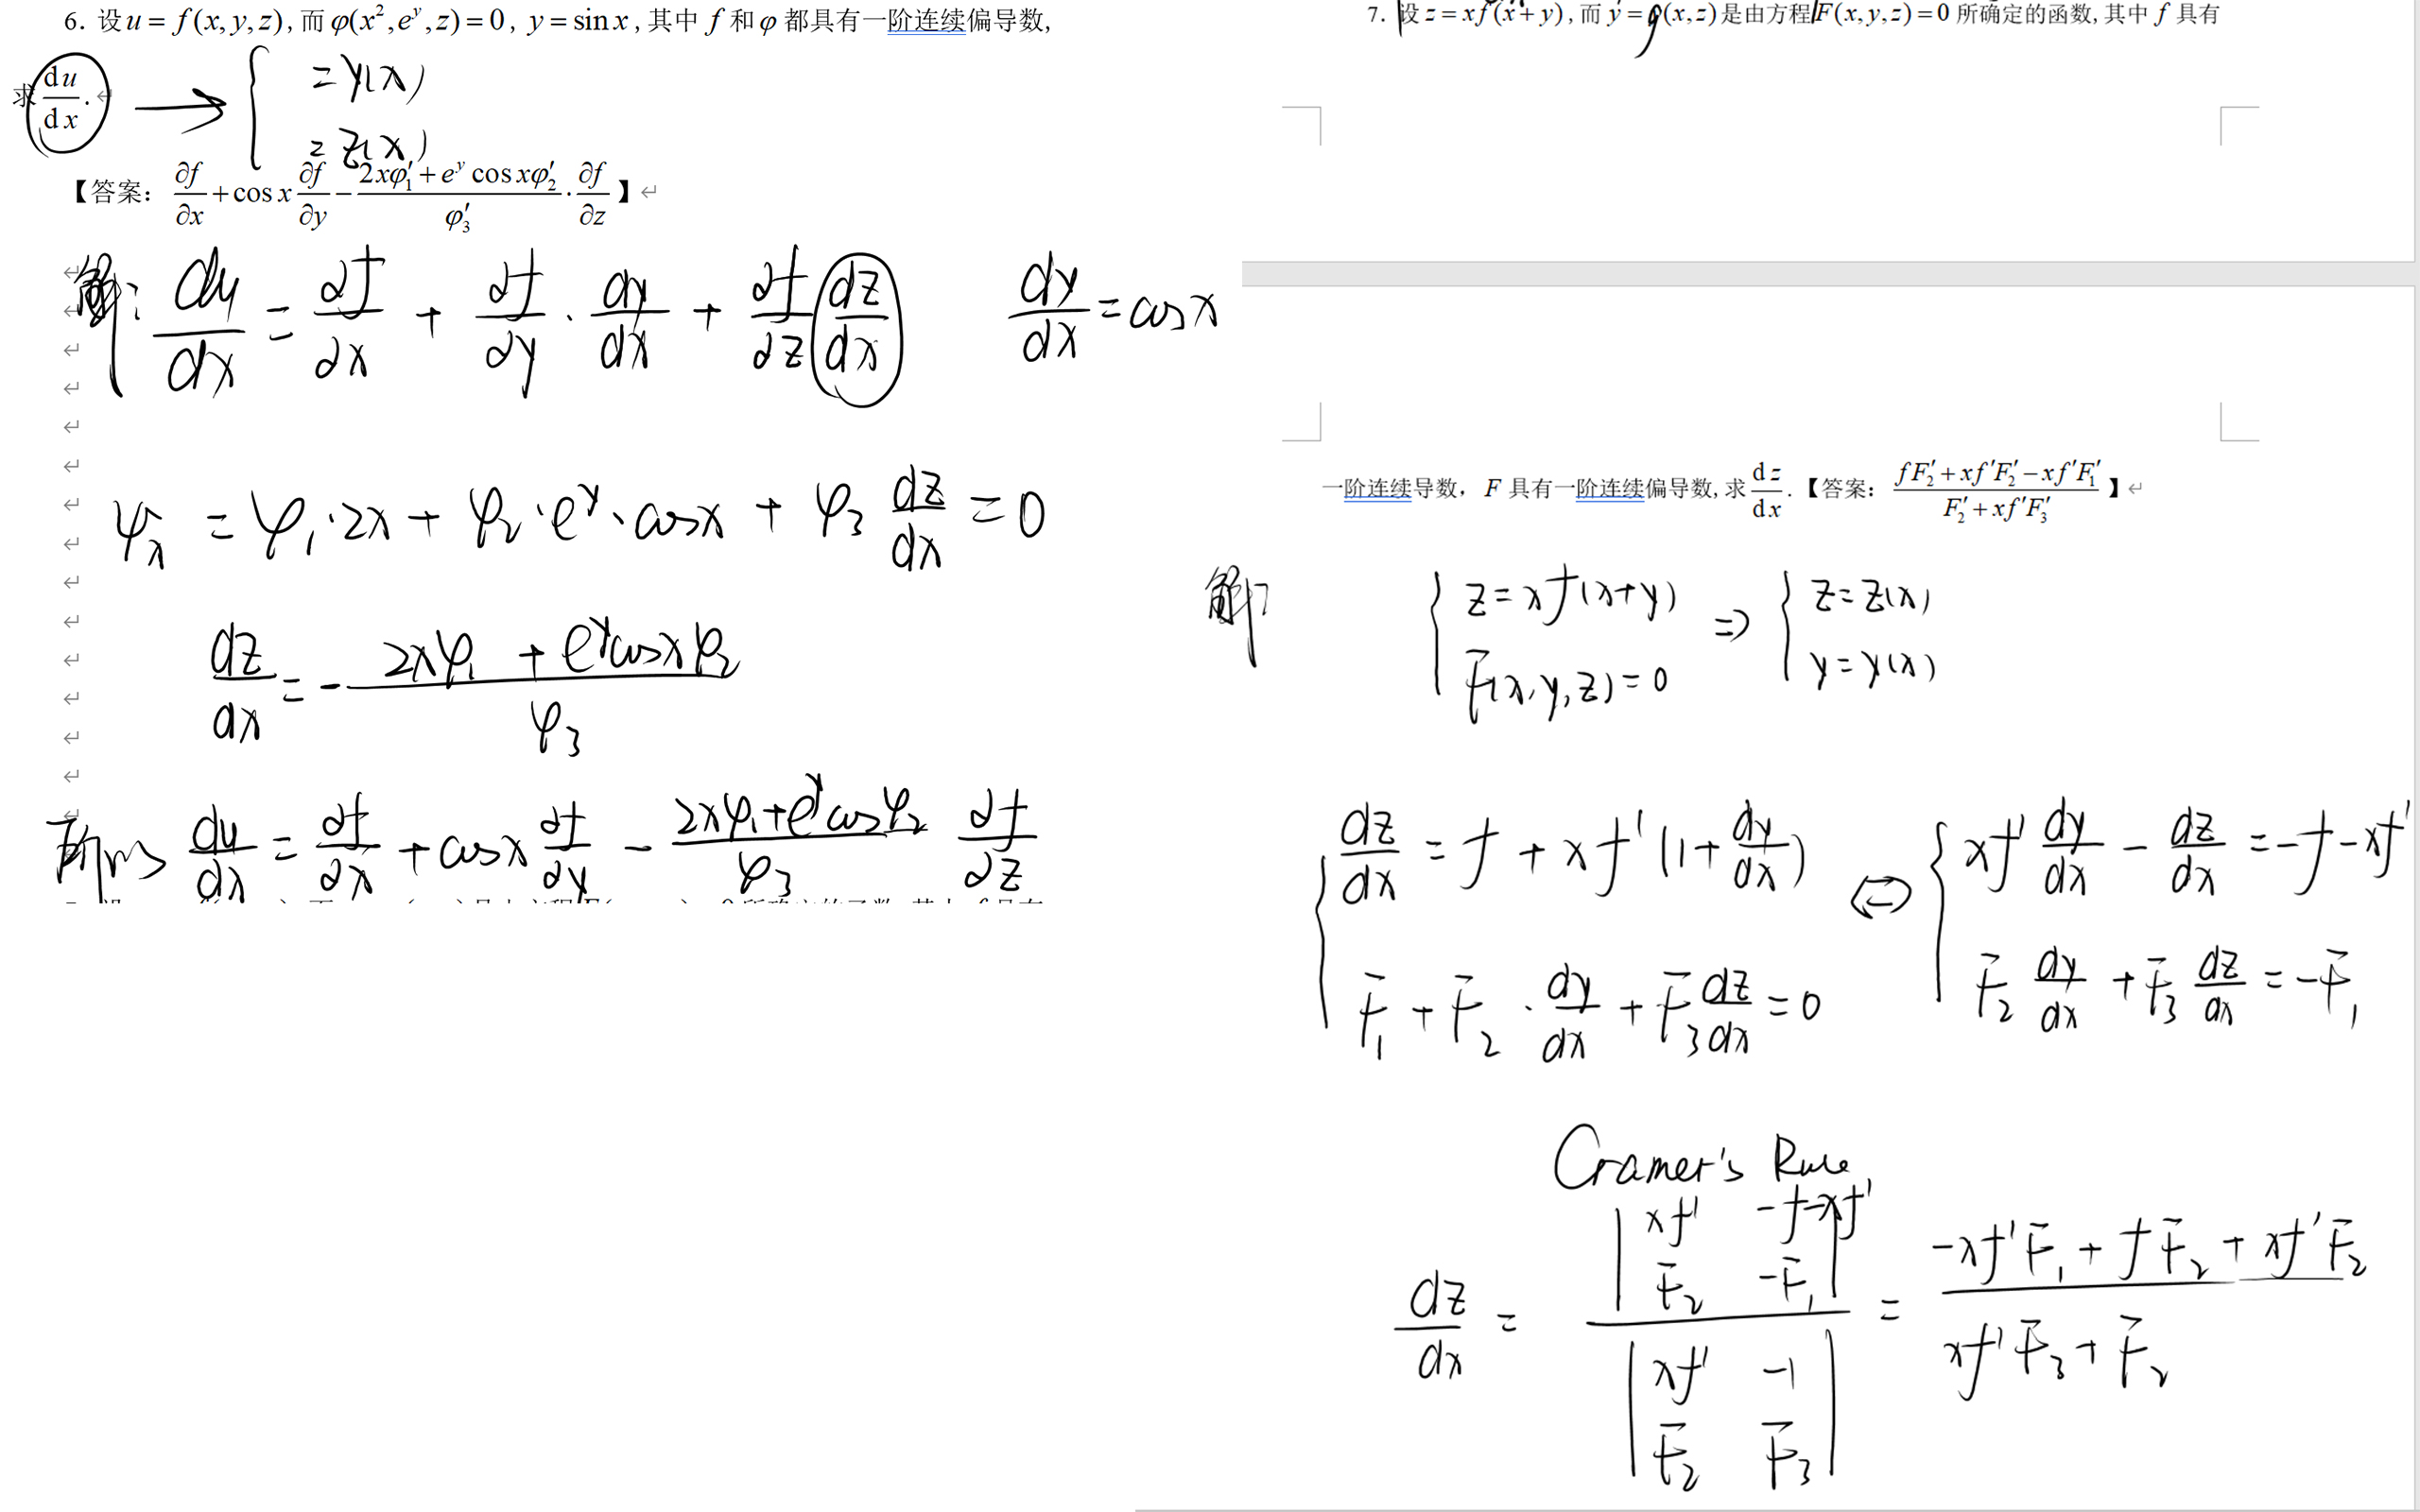 6. 设 u = f(x, y, z), 而 φ(x², e^y, z) = 0, y = sin x, 其中 f 和 φ 都具有一阶连续偏导数,
求 du/dx. → { = y(x)
= z(x)
【答案: ∂f/∂x + cos x ∂f/∂y − (2xφ′₁ + e^y cos xφ′₂)/φ′₃ · ∂f/∂z】
解: du/dx = ∂f/∂x + ∂f/∂y · dy/dx + ∂f/∂z dz/dx    dy/dx = cos x
φₓ = φ₁·2x + φ₂·e^y·cos x + φ₃ dz/dx = 0
dz/dx = − (2xφ₁ + e^y cos x φ₂)/φ₃
所以 du/dx = ∂f/∂x + cos x ∂f/∂y − (2xφ₁ + e^y cos φ₂)/φ₃ ∂f/∂z
7. 设 z = xf(x + y), 而 y = φ(x, z) 是由方程 F(x, y, z) = 0 所确定的函数, 其中 f 具有
一阶连续导数, F 具有一阶连续偏导数, 求 dz/dx. 【答案: (fF′₂ + xf′F′₂ − xf′F′₁)/(F′₂ + xf′F′₃)】
解: { z = xf(x+y) ⇒ { z = z(x)
F(x, y, z) = 0    y = y(x)
{ dz/dx = f + xf′(1 + dy/dx) ⇔ { xf′ dy/dx − dz/dx = −f − xf′
F₁ + F₂ · dy/dx + F₃ dz/dx = 0    F₂ dy/dx + F₃ dz/dx = −F₁
Cramer's Rule
dz/dx = | xf′  −f−xf′ ; F₂  −F₁ | / | xf′  −1 ; F₂  F₃ | = (−xf′F₁ + fF₂ + xf′F₂)/(xf′F₃ + F₂)